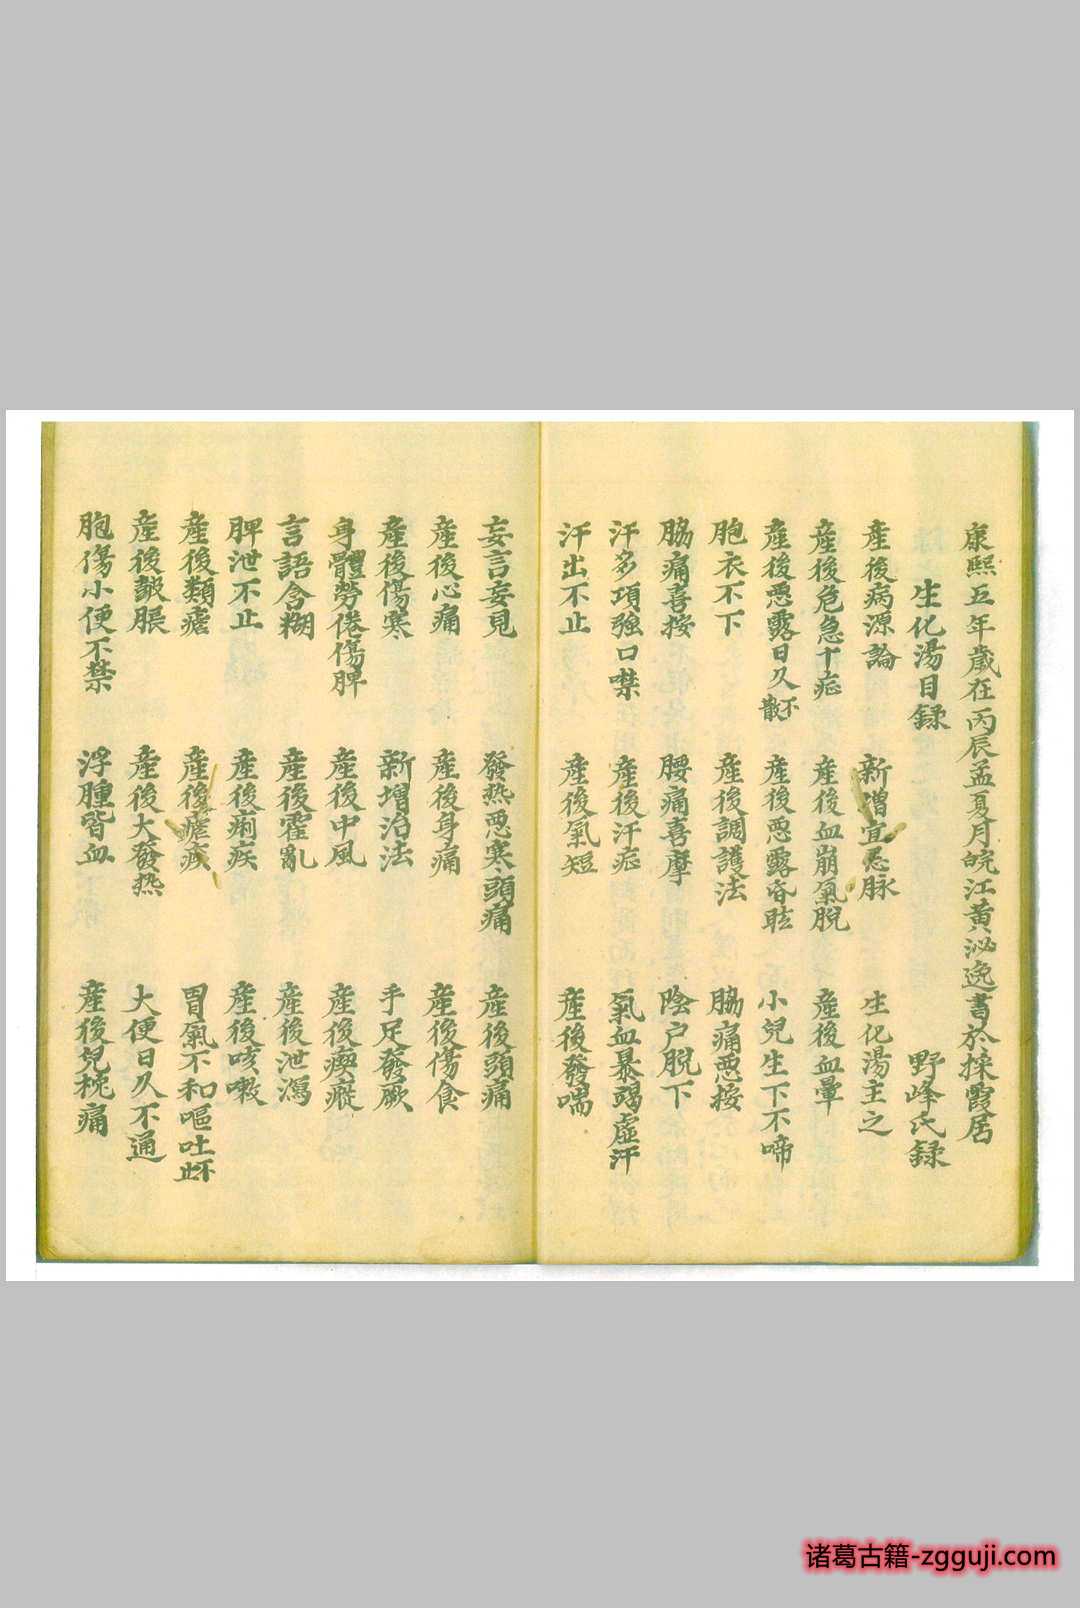 康熙五年歲在丙辰孟夏月皖江黄泌逸書於採霞居
生化湯目録 野峰氏録
産後病源論 新增宜忌脉 生化湯主之
産後危急十症 産後血崩氣脱 産後血暈
産後惡露日久不散 産後惡露昏眩 小兒生下不啼
胞衣不下 産後調護法 脇痛惡按
脇痛喜按 腰痛喜摩 陰户脱下
汗多項強口噤 産後汗症 氣血暴竭虚汗
汗出不止 産後氣短 産後發喘
妄言妄見 發热惡寒頭痛 産後頭痛
産後心痛 産後身痛 産後傷食
産後傷寒 新增治法 手足發厥
身體勞倦傷脾 産後中風 産後瘈瘲
言語含糊 産後霍亂 産後泄瀉
脾泄不止 産後痢疾 産後咳嗽
産後類瘧 産後瘧疾 胃氣不和嘔吐不止
産後皷脹 産後大發热 大便日久不通
胞傷小便不禁 浮腫皆血 産後兒枕痛
诸葛古籍-zgguji.com